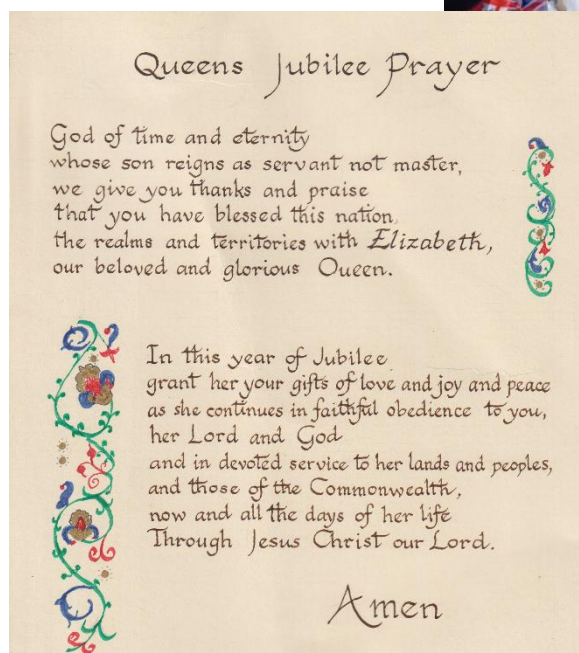 Queens Jubilee Prayer
God of time and eternity
whose son reigns as servant not master,
we give you thanks and praise
that you have blessed this nation,
the realms and territories with Elizabeth,
our beloved and glorious Queen.
In this year of Jubilee
grant her your gifts of love and joy and peace
as she continues in faithful obedience to you,
her Lord and God
and in devoted service to her lands and peoples,
and those of the Commonwealth,
now and all the days of her life
Through Jesus Christ our Lord.
Amen